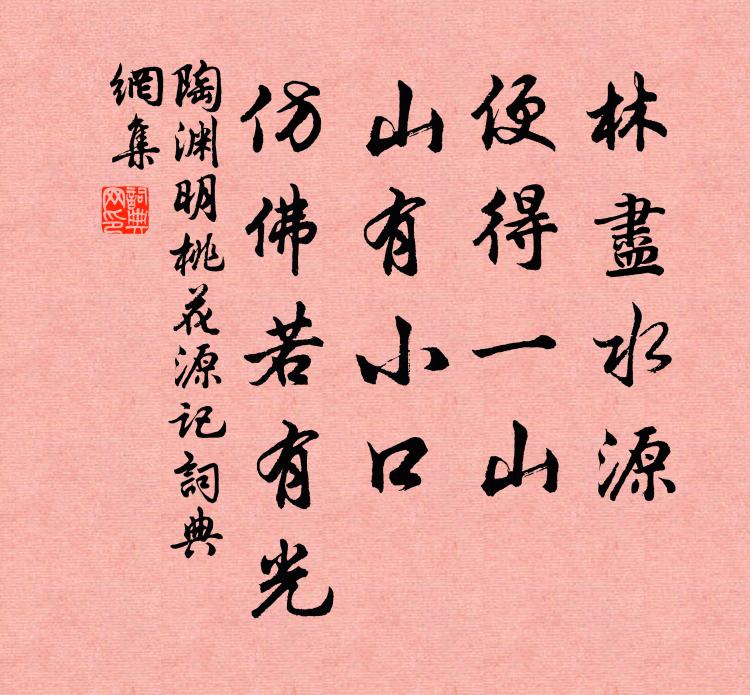 林盡水源
便得一山
山有小口
仿佛若有光
陶渊明桃花源记詞典
網集
詞典
网印